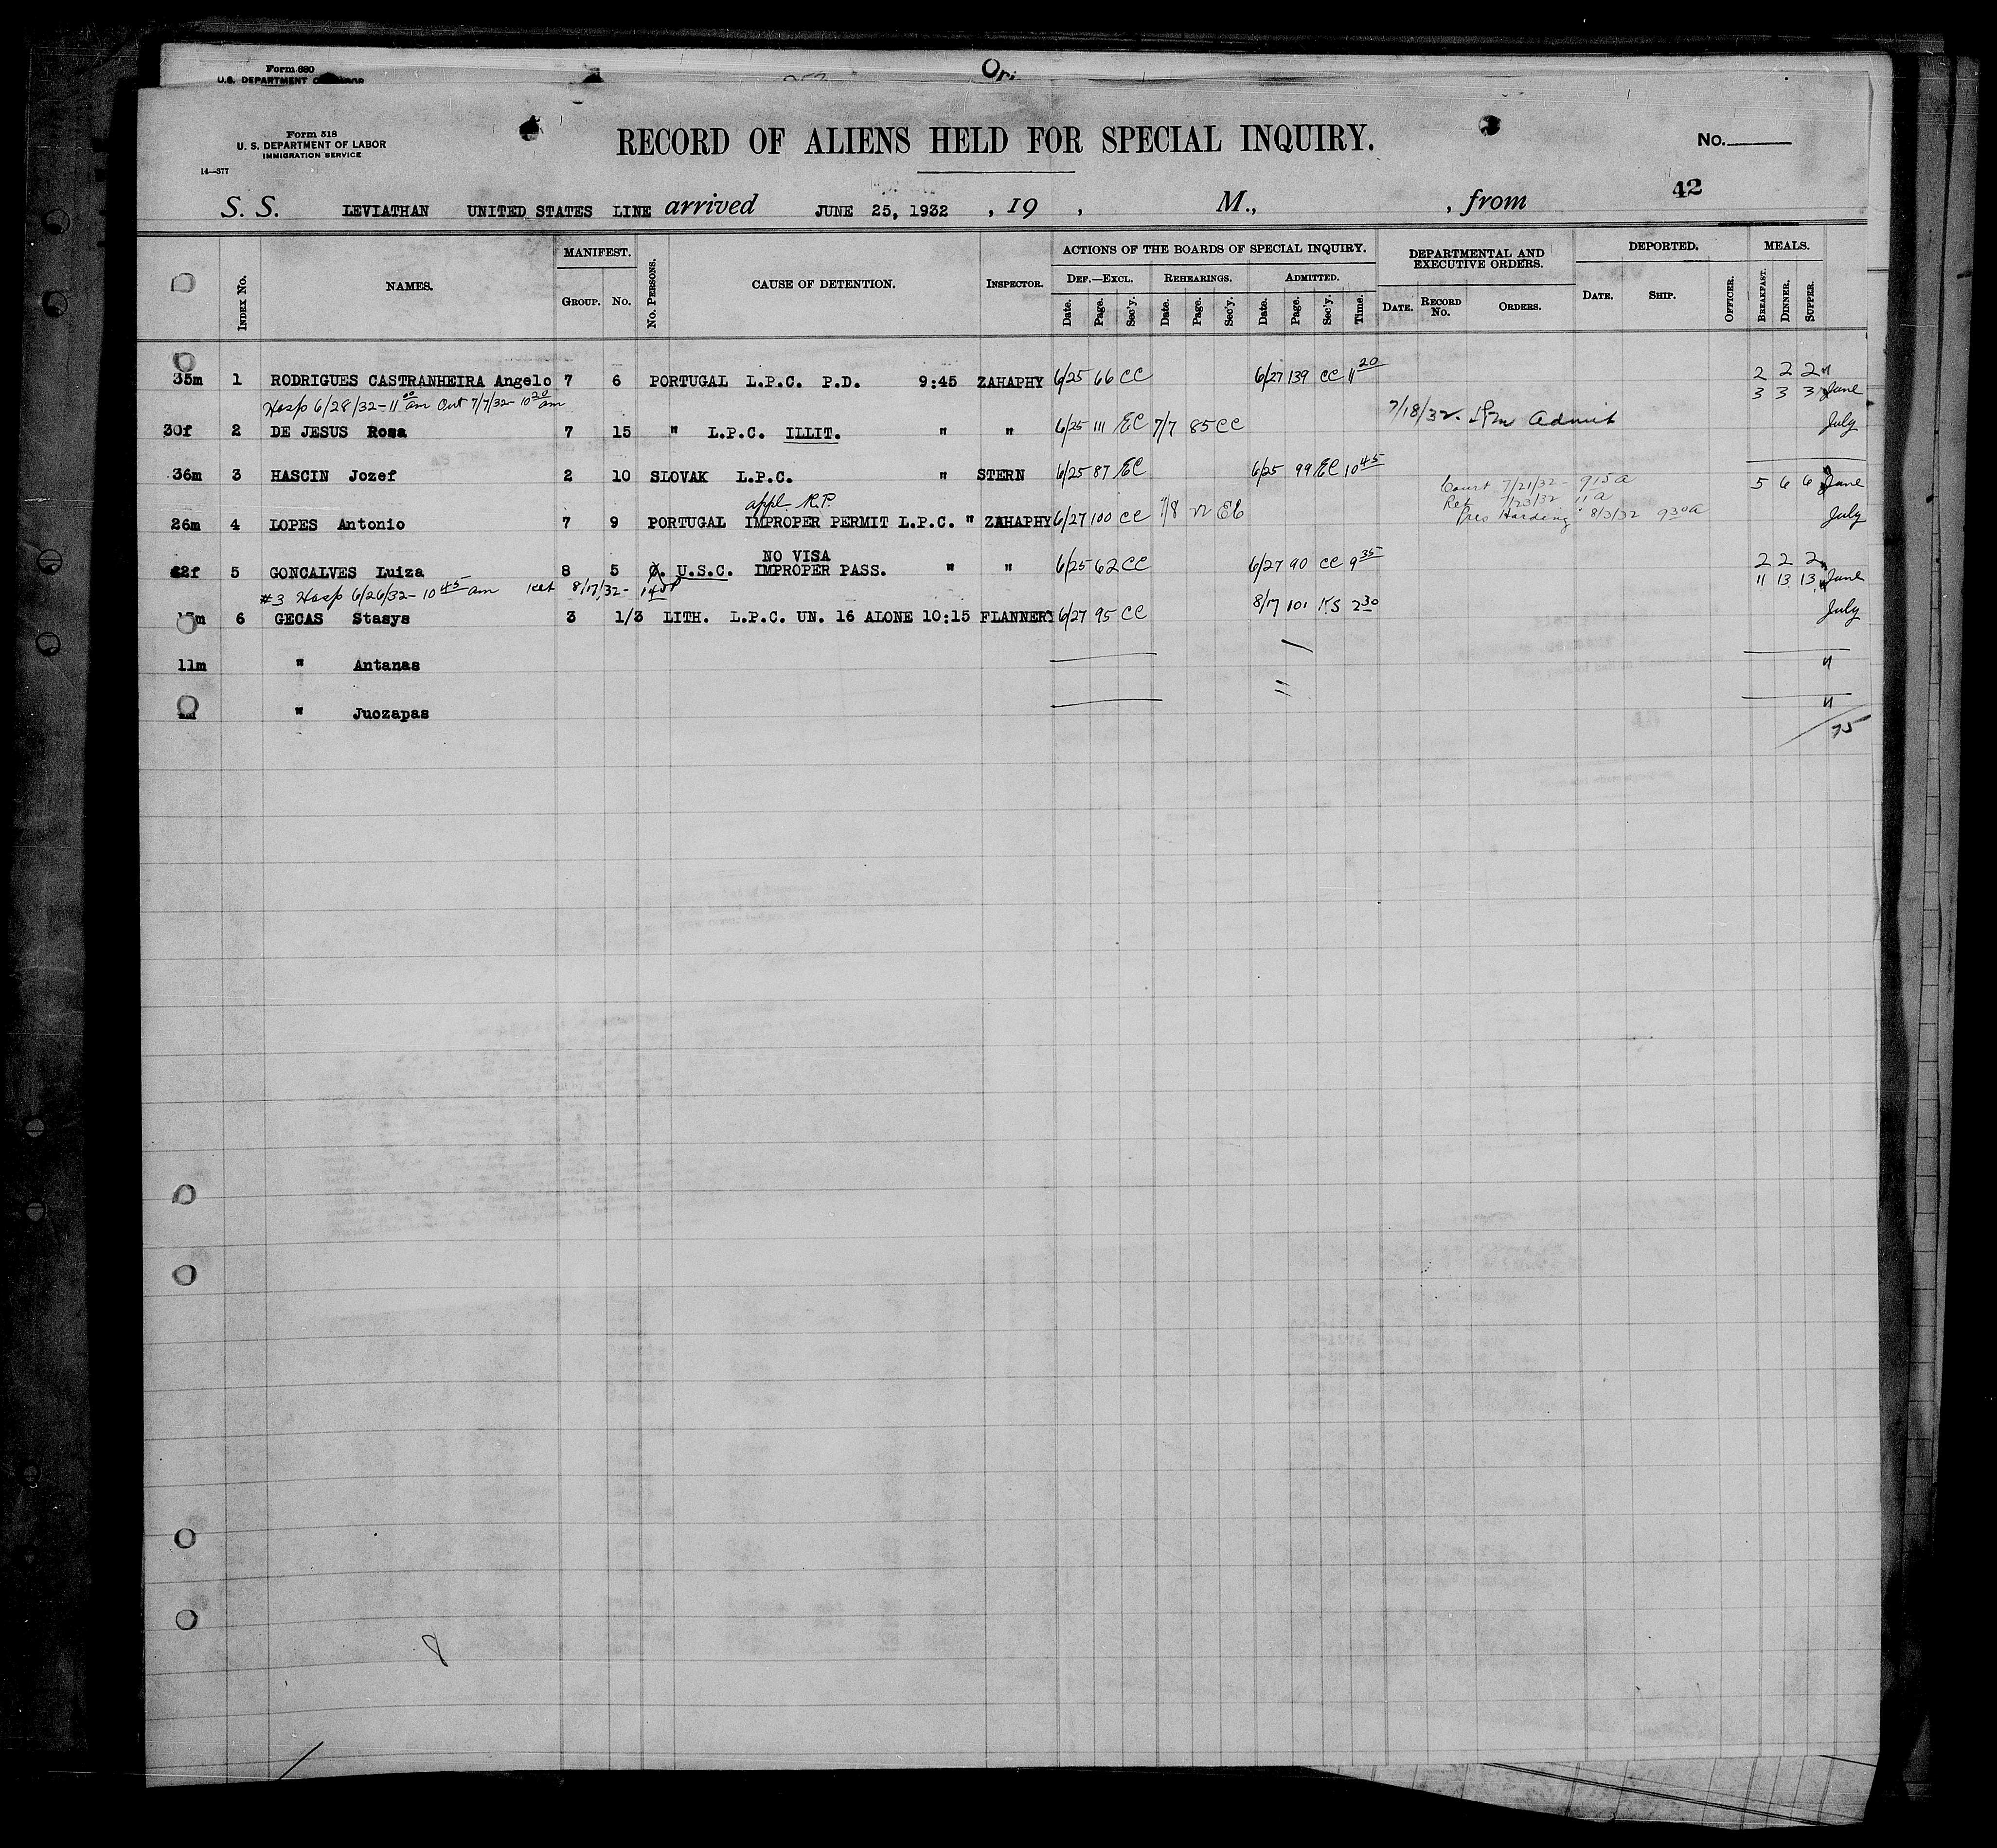 Form 680
U.S. DEPARTMENT OF LABOR
Ori
Form 518
U. S. DEPARTMENT OF LABOR
IMMIGRATION SERVICE
14—377
RECORD OF ALIENS HELD FOR SPECIAL INQUIRY.
No.
42
S. S. LEVIATHAN UNITED STATES LINE arrived JUNE 25, 1932 , 19 , M., , from
INDEX No. NAMES. MANIFEST. GROUP. No. No. PERSONS. CAUSE OF DETENTION. INSPECTOR. ACTIONS OF THE BOARDS OF SPECIAL INQUIRY. DEF.—EXCL. Date. Page. Sec'y. REHEARINGS. Date. Page. Sec'y. ADMITTED. Date. Page. Sec'y. Time. DEPARTMENTAL AND EXECUTIVE ORDERS. DATE. RECORD No. ORDERS. DEPORTED. DATE. SHIP. OFFICER. MEALS. BREAKFAST. DINNER. SUPPER.
35m 1 RODRIGUES CASTRANHEIRA Angelo 7 6 PORTUGAL L.P.C. P.D. 9:45 ZAHAPHY 6/25 66 CC 6/27 139 CC 11 20 2 2 2 "
Hosp 6/28/32-11 00 am Out 7/7/32-10 20 am 3 3 3 June
30f 2 DE JESUS Rosa 7 15 " L.P.C. ILLIT. " " 6/25 111 EC 7/7 85 CC 7/18/32 Admit July
36m 3 HASCIN Jozef 2 10 SLOVAK L.P.C. " STERN 6/25 87 EC 6/25 99 EC 10 45 5 6 6 June
Court 7/21/32- 915a
Ret 7/23/32 11a
appl. R.P.
26m 4 LOPES Antonio 7 9 PORTUGAL IMPROPER PERMIT L.P.C. " ZAHAPHY 6/27 100 CC 7/8 EC Pres Harding 8/3/32 930a July
NO VISA
42f 5 GONCALVES Luiza 8 5 U.S.C. IMPROPER PASS. " " 6/25 62 CC 6/27 90 CC 9 35 2 2 2 "
#3 Hosp 6/26/32-10 45 am Ret 8/17/32- 11 13 13 June
17m 6 GECAS Stasys 3 1/3 LITH. L.P.C. UN. 16 ALONE 10:15 FLANNERY 6/27 95 CC 8/17 101 KS 2 30 July
11m " Antanas "
" Juozapas "
75
8